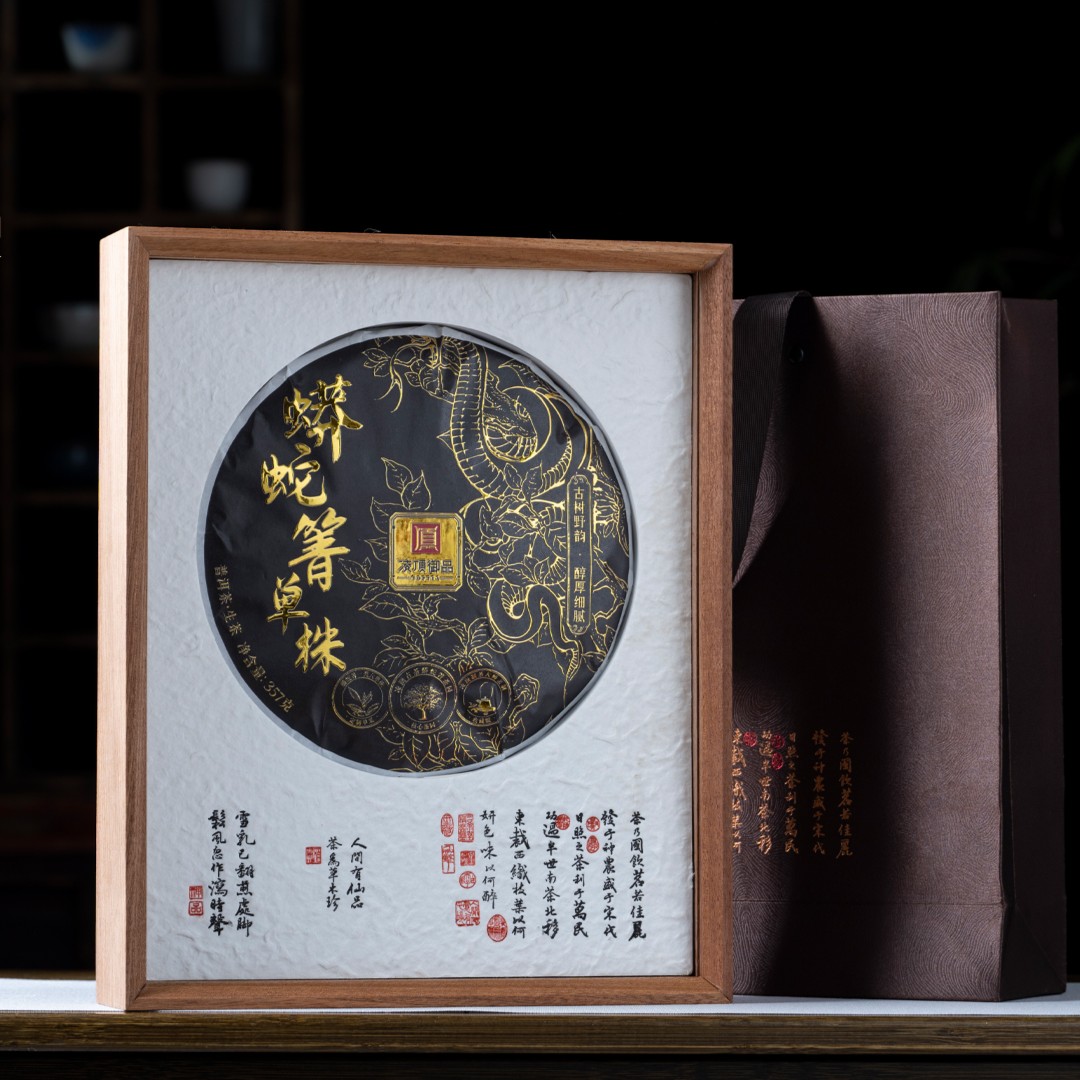 蟒蛇箐单株
普洱茶·生茶 净含量:357克
頂御品
古树野韵·醇厚细腻
茶乃國飲茗若佳麗
發于神農盛于宋代
日照之茶利于萬民
功過早世南茶北移
東栽西織技葉以何
妍色味以何醉
人間有仙品
茶為草木珍
雪乳已翻煎處脚
鬆風忽作瀉時聲
茶乃國飲茗若佳麗
發于神農盛于宋代
日照之茶利于萬民
功過早世南茶北移
東栽西織技葉以何